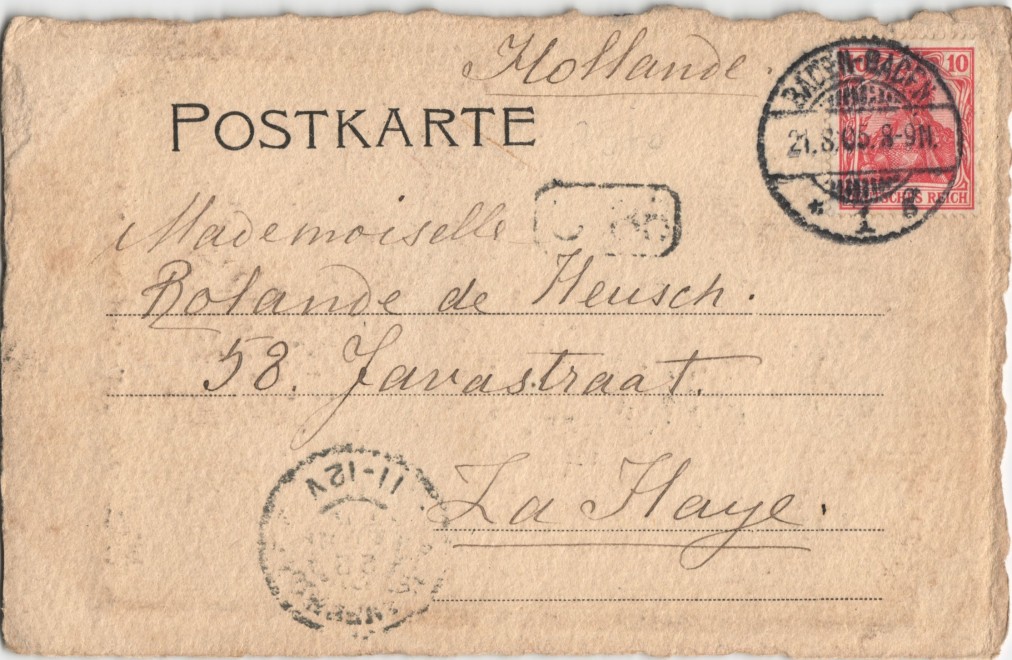 Hollande.
POSTKARTE
BADEN-BADEN
21.8.05. 8-9N.
* 1 g
10
DEUTSCHES REICH
Mademoiselle
Rolande de Heusch.
58. Javastraat.
La Haye.
11-12V